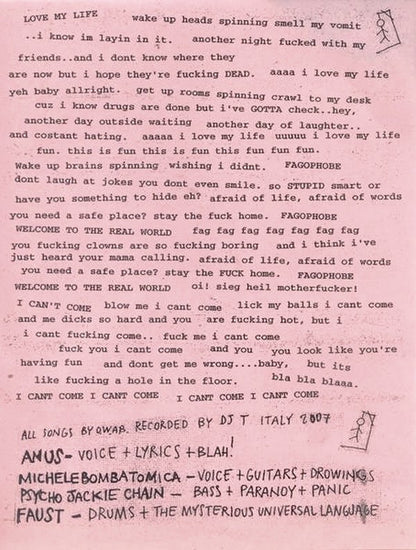 LOVE MY LIFE wake up heads spinning smell my vomit
..i know im layin in it. another night fucked with my
friends..and i dont know where they
are now but i hope they're fucking DEAD. aaaa i love my life
yeh baby allright. get up rooms spinning crawl to my desk
cuz i know drugs are done but i've GOTTA check..hey,
another day outside waiting another day of laughter..
and costant hating. aaaaa i love my life uuuuu i love my life
fun. this is fun this is fun this fun fun fun.
Wake up brains spinning wishing i didnt. FAGOPHOBE
dont laugh at jokes you dont even smile. so STUPID smart or
have you something to hide eh? afraid of life, afraid of words
you need a safe place? stay the fuck home. FAGOPHOBE
WELCOME TO THE REAL WORLD fag fag fag fag fag fag fag
you fucking clowns are so fucking boring and i think i've
just heard your mama calling. afraid of life, afraid of words
you need a safe place? stay the FUCK home. FAGOPHOBE
WELCOME TO THE REAL WORLD oi! sieg heil motherfucker!
I CAN'T COME blow me i cant come lick my balls i cant come
and me dicks so hard and you are fucking hot, but i
i cant fucking come.. fuck me i cant come
fuck you i cant come and you you look like you're
having fun and dont get me wrong....baby, but its
like fucking a hole in the floor. bla bla blaaa.
I CANT COME I CANT COME I CANT COME I CANT COME
ALL SONGS BY QWAB. RECORDED BY DJ T ITALY 2007
ANUS - VOICE + LYRICS + BLAH!
MICHELE BOMBATOMICA - VOICE + GUITARS + DROWINGS
PSYCHO JACKIE CHAIN - BASS + PARANOY + PANIC
FAUST - DRUMS + THE MYSTERIOUS UNIVERSAL LANGUAGE